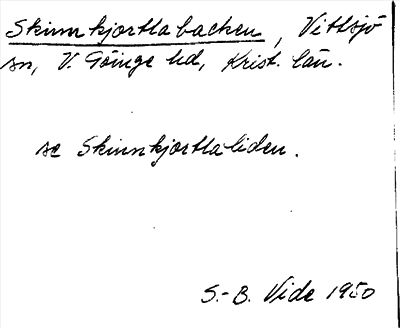 Skinnkjortlabacken, Vittsjö
sn, V. Göinge hd, Krist. län.
se Skinnkjortlaliden.
S.-B. Vide 1950